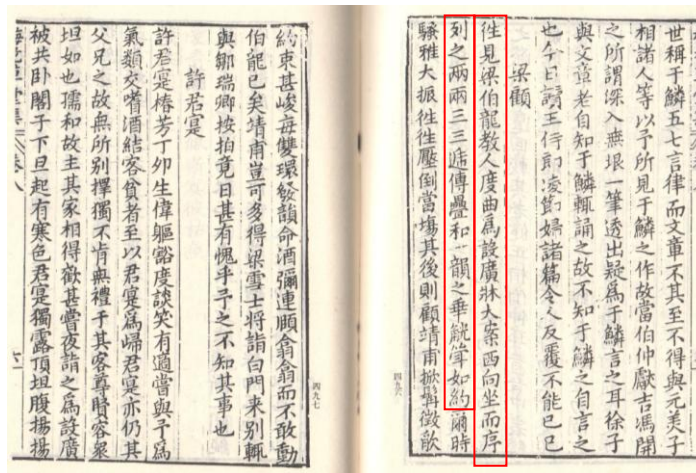 世稱于鱗五七言律而文章不其至不得與元美子
相諸人等以予所見于鱗之作故當伯仲獻吉馮開
之所謂深入無垠一筆透出疑爲于鱗言之耳徐子
與文章老自知于鱗輒誦之故不知于鱗之自言之
也今日讀王行郎凌節婦諸篇令人反覆不能已已
梁顧
徃見梁伯龍教人度曲爲設廣牀大案西向坐而序
列之兩兩三三遞傳疊和一韻之乖觥斝如約爾時
騷雅大振徃徃壓倒當塲其後則顧靖甫掀髯徵歌
四九六
約束甚峻每雙環發韻命酒彌連頤翁翁而不敢動
伯龍已矣靖甫豈可多得梁雪士將詣白門来別輒
與鄒瑞卿按拍竟日甚有愧乎予之不知其事也
許君寔
許君寔椿芳丁卯生偉軀豁度談笑有適嘗與予爲
氣類交嗜酒結客貧者至以君寔爲歸君寔亦仍其
父兄之故無所別擇獨不肯無禮于其客尊賢容衆
坦如也孺和故主其家相得歡甚嘗夜詣之爲設廣
被共卧閣子下旦起有寒色君寔獨露頂坦腹揚揚
四九七